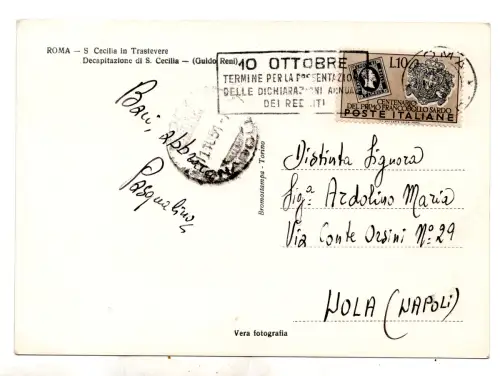 ROMA – S Cecilia in Trastevere
Decapitazione di S. Cecilia – (Guido Reni)
10 OTTOBRE
TERMINE PER LA PRESENTAZIONE
DELLE DICHIARAZIONI ANNUALI
DEI REDDITI
L.10
CENTENARIO
DEL PRIMO FRANCOBOLLO SARDO
POSTE ITALIANE
ROMA
Baci, abbracci
Pasqualino
Bromostampa - Torino
Distinta Signora
Sig.ª Ardolino Maria
Via Conte Orsini N° 29
NOLA (NAPOLI)
Vera fotografia